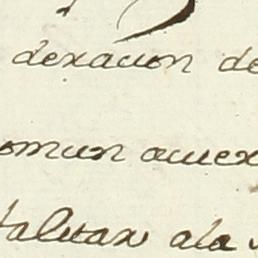 dexacion de
omun acuex
talitax ala